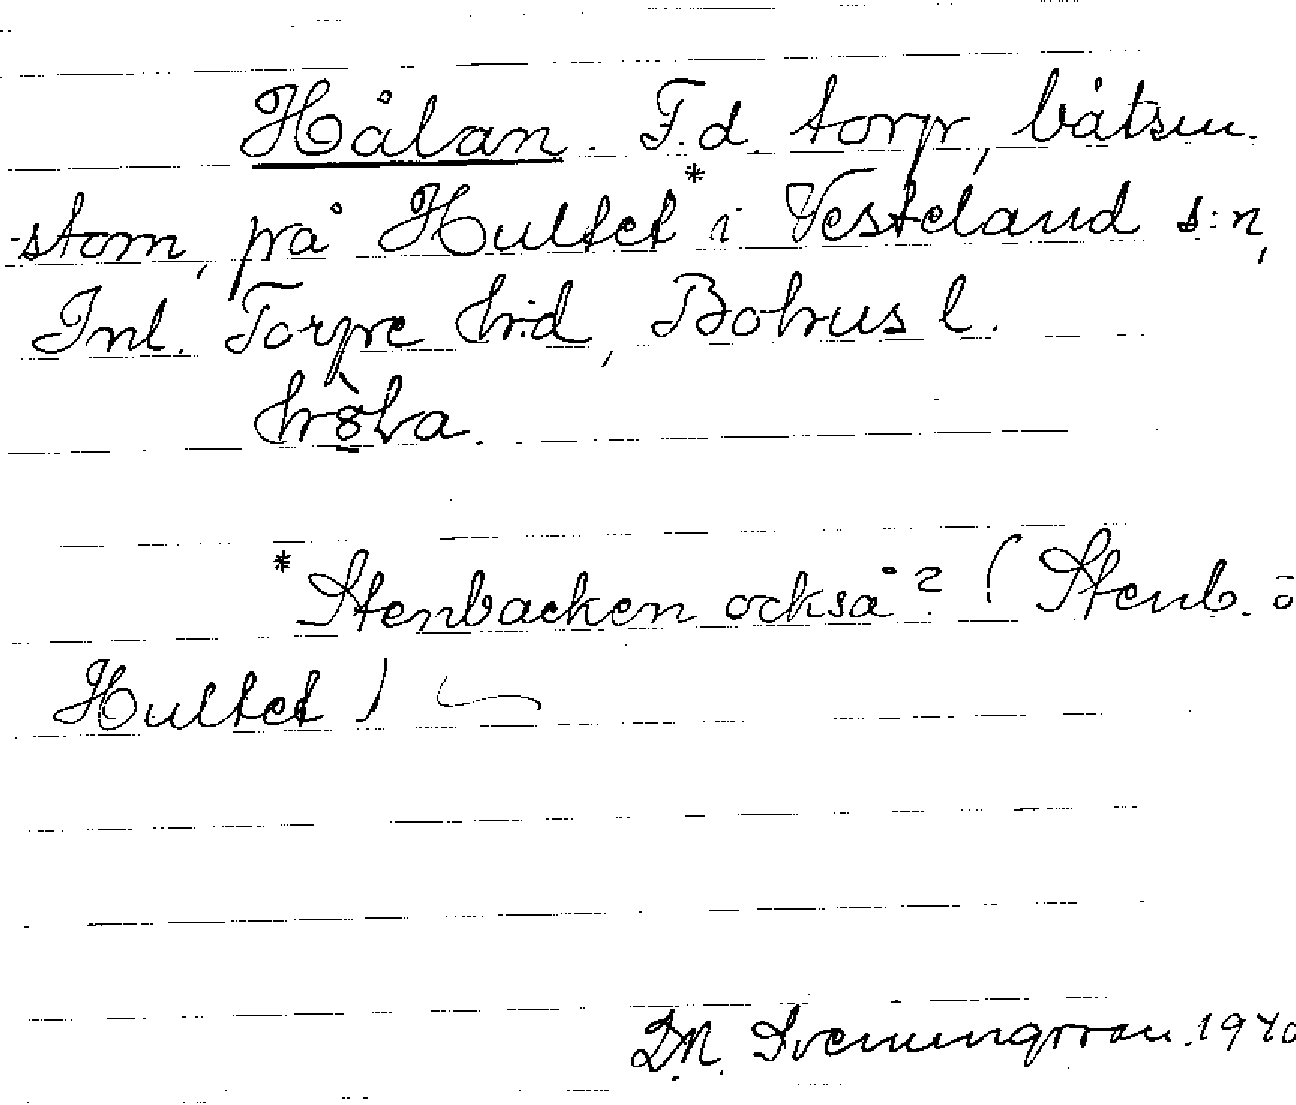 Hålan. F.d. torp, båtsm.
-stom, på Hultet* i Vesteland s:n,
Inl. Torpe hrd, Bohus l.
*Stenbacken också? (Stenb. o
Hultet)
D.N. Sveningsson. 1940